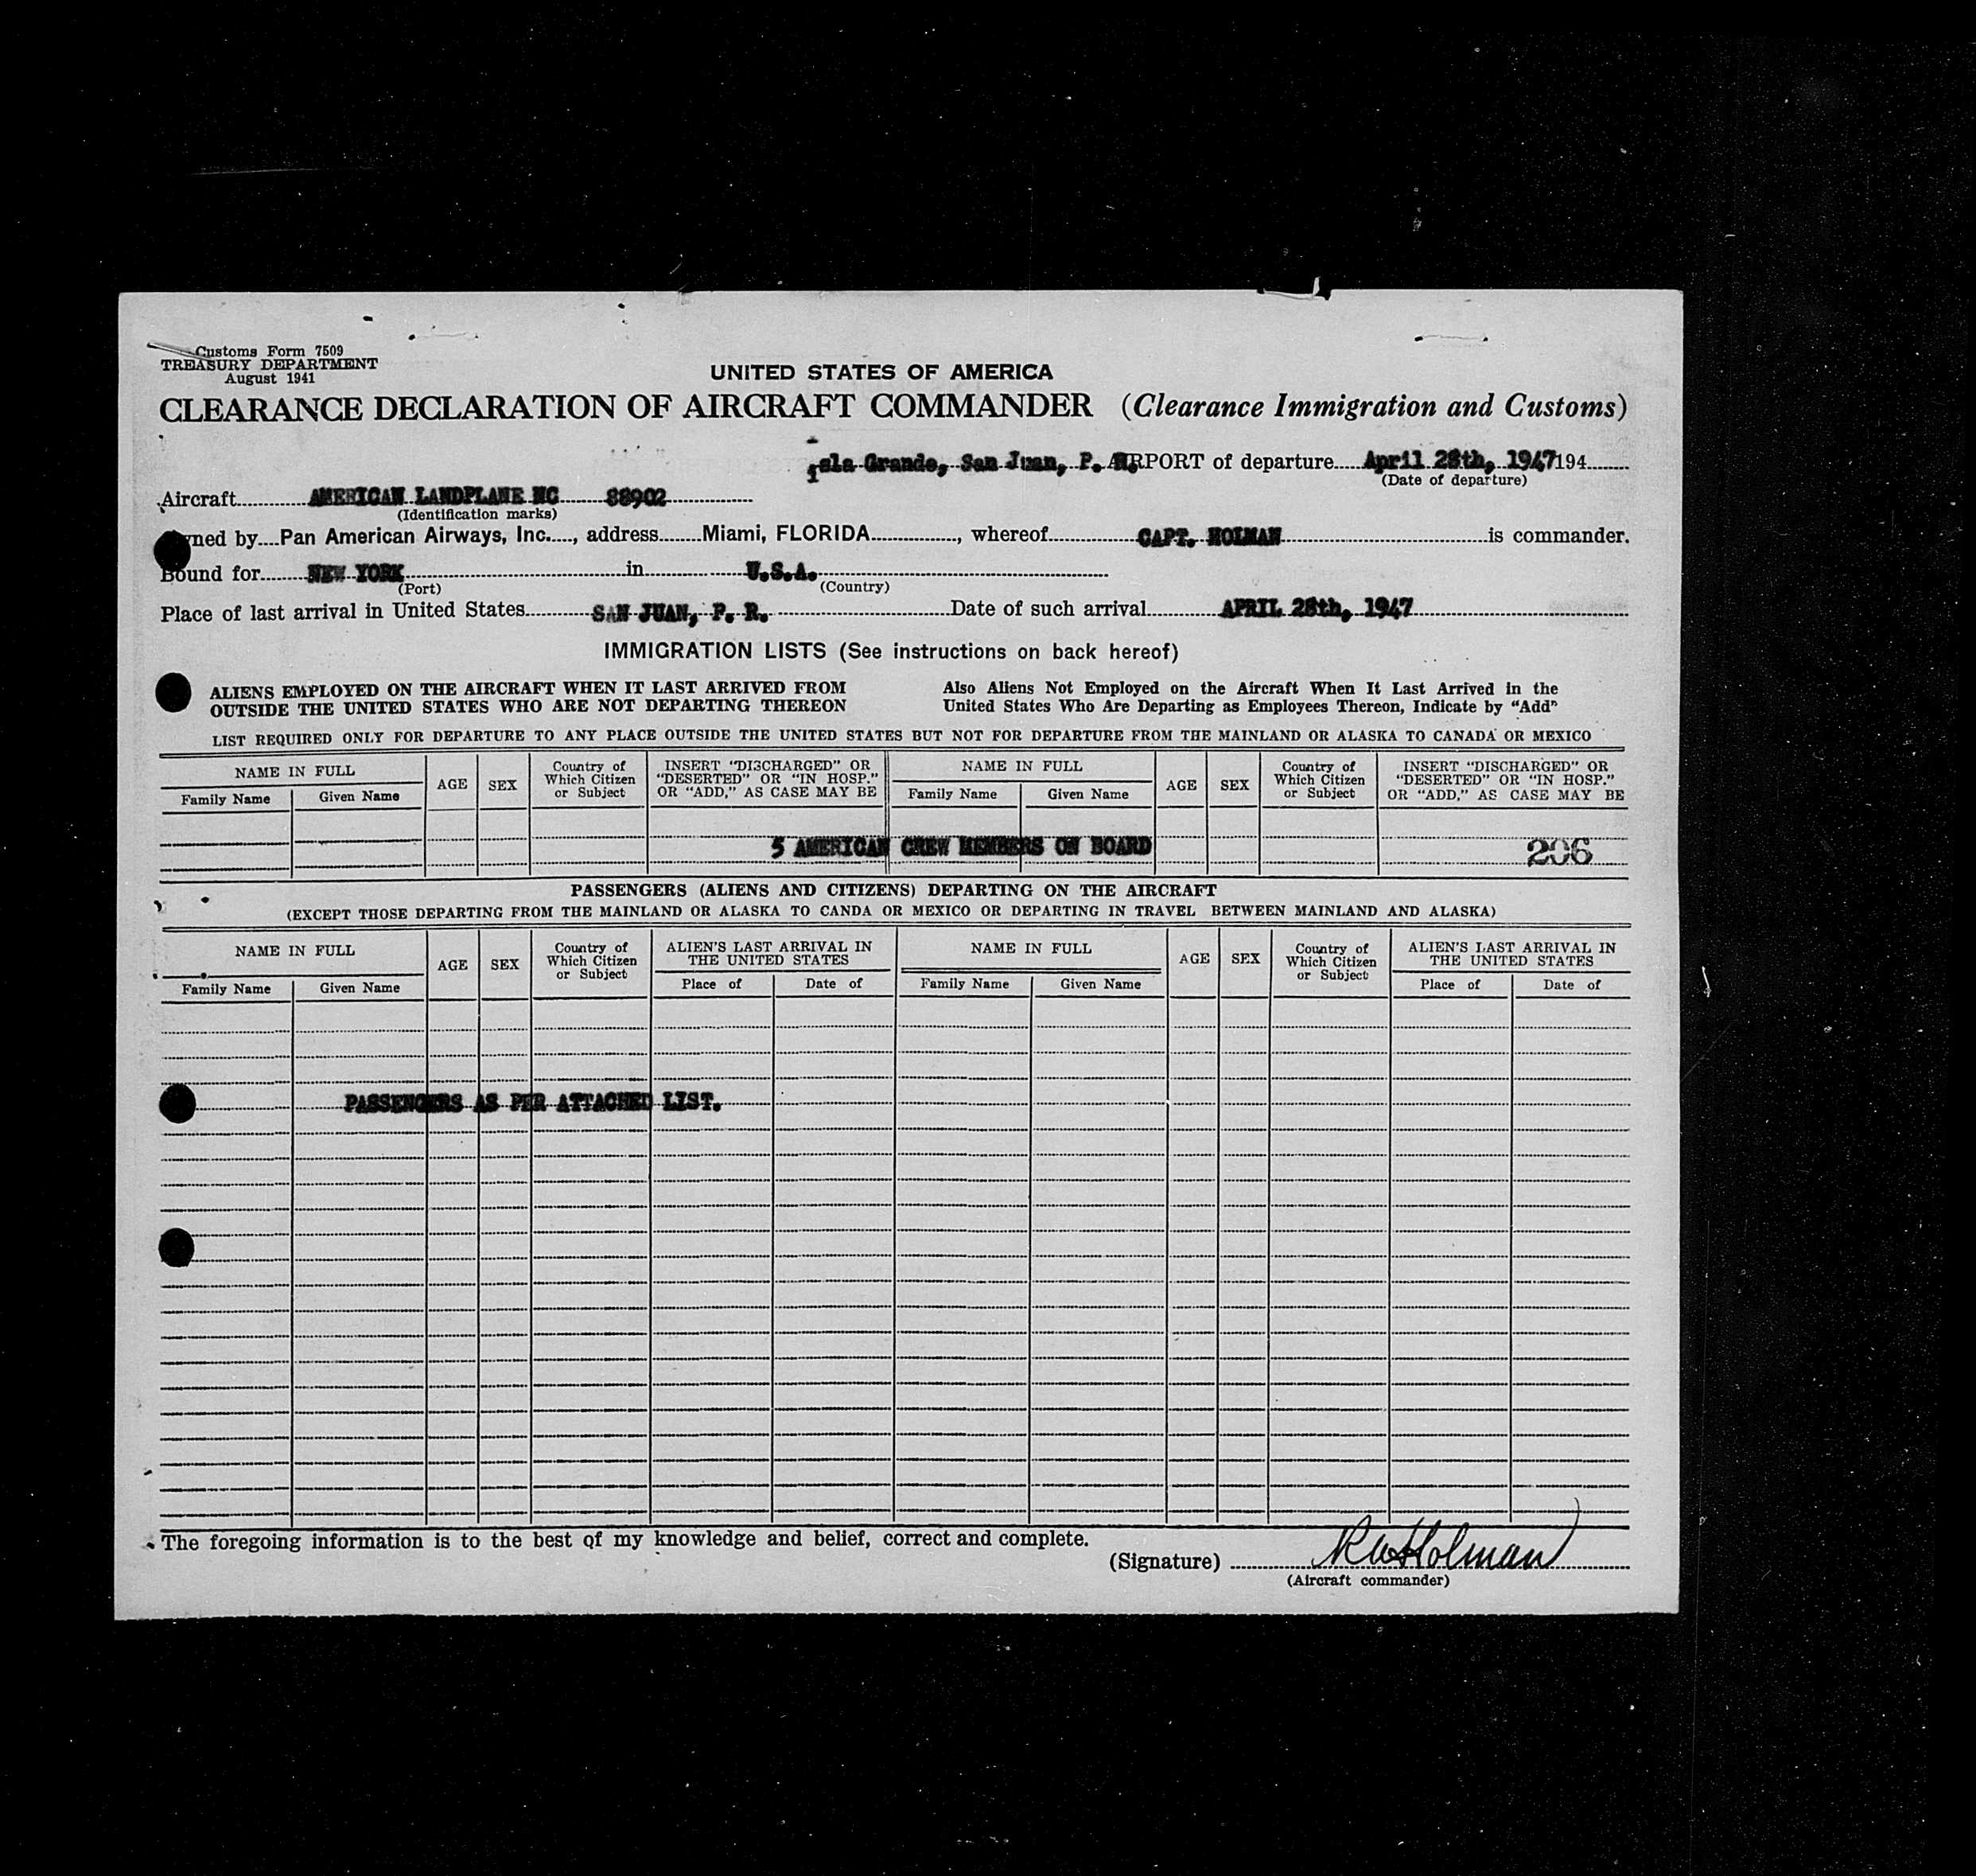 Customs Form 7509
TREASURY DEPARTMENT
August 1941
UNITED STATES OF AMERICA
CLEARANCE DECLARATION OF AIRCRAFT COMMANDER (Clearance Immigration and Customs)
Isla Grande, San Juan, P. R. AIRPORT of departure April 28th, 1947 194
(Date of departure)
Aircraft AMERICAN LANDPLANE NC 88902
(Identification marks)
Owned by Pan American Airways, Inc., address Miami, FLORIDA, whereof CAPT. HOLMAN is commander.
Bound for NEW YORK in U.S.A.
(Port) (Country)
Place of last arrival in United States SAN JUAN, P. R. Date of such arrival APRIL 28th, 1947
IMMIGRATION LISTS (See instructions on back hereof)
ALIENS EMPLOYED ON THE AIRCRAFT WHEN IT LAST ARRIVED FROM OUTSIDE THE UNITED STATES WHO ARE NOT DEPARTING THEREON
Also Aliens Not Employed on the Aircraft When It Last Arrived in the United States Who Are Departing as Employees Thereon, Indicate by "Add"
LIST REQUIRED ONLY FOR DEPARTURE TO ANY PLACE OUTSIDE THE UNITED STATES BUT NOT FOR DEPARTURE FROM THE MAINLAND OR ALASKA TO CANADA OR MEXICO
NAME IN FULL AGE SEX Country of Which Citizen or Subject INSERT "DISCHARGED" OR "DESERTED" OR "IN HOSP." OR "ADD," AS CASE MAY BE NAME IN FULL AGE SEX Country of Which Citizen or Subject INSERT "DISCHARGED" OR "DESERTED" OR "IN HOSP." OR "ADD," AS CASE MAY BE
Family Name Given Name Family Name Given Name
5 AMERICAN CREW MEMBERS ON BOARD 206
PASSENGERS (ALIENS AND CITIZENS) DEPARTING ON THE AIRCRAFT
(EXCEPT THOSE DEPARTING FROM THE MAINLAND OR ALASKA TO CANDA OR MEXICO OR DEPARTING IN TRAVEL BETWEEN MAINLAND AND ALASKA)
NAME IN FULL AGE SEX Country of Which Citizen or Subject ALIEN'S LAST ARRIVAL IN THE UNITED STATES NAME IN FULL AGE SEX Country of Which Citizen or Subject ALIEN'S LAST ARRIVAL IN THE UNITED STATES
Family Name Given Name Place of Date of Family Name Given Name Place of Date of
PASSENGERS AS PER ATTACHED LIST.
The foregoing information is to the best of my knowledge and belief, correct and complete.
(Signature) RW Holman
(Aircraft commander)